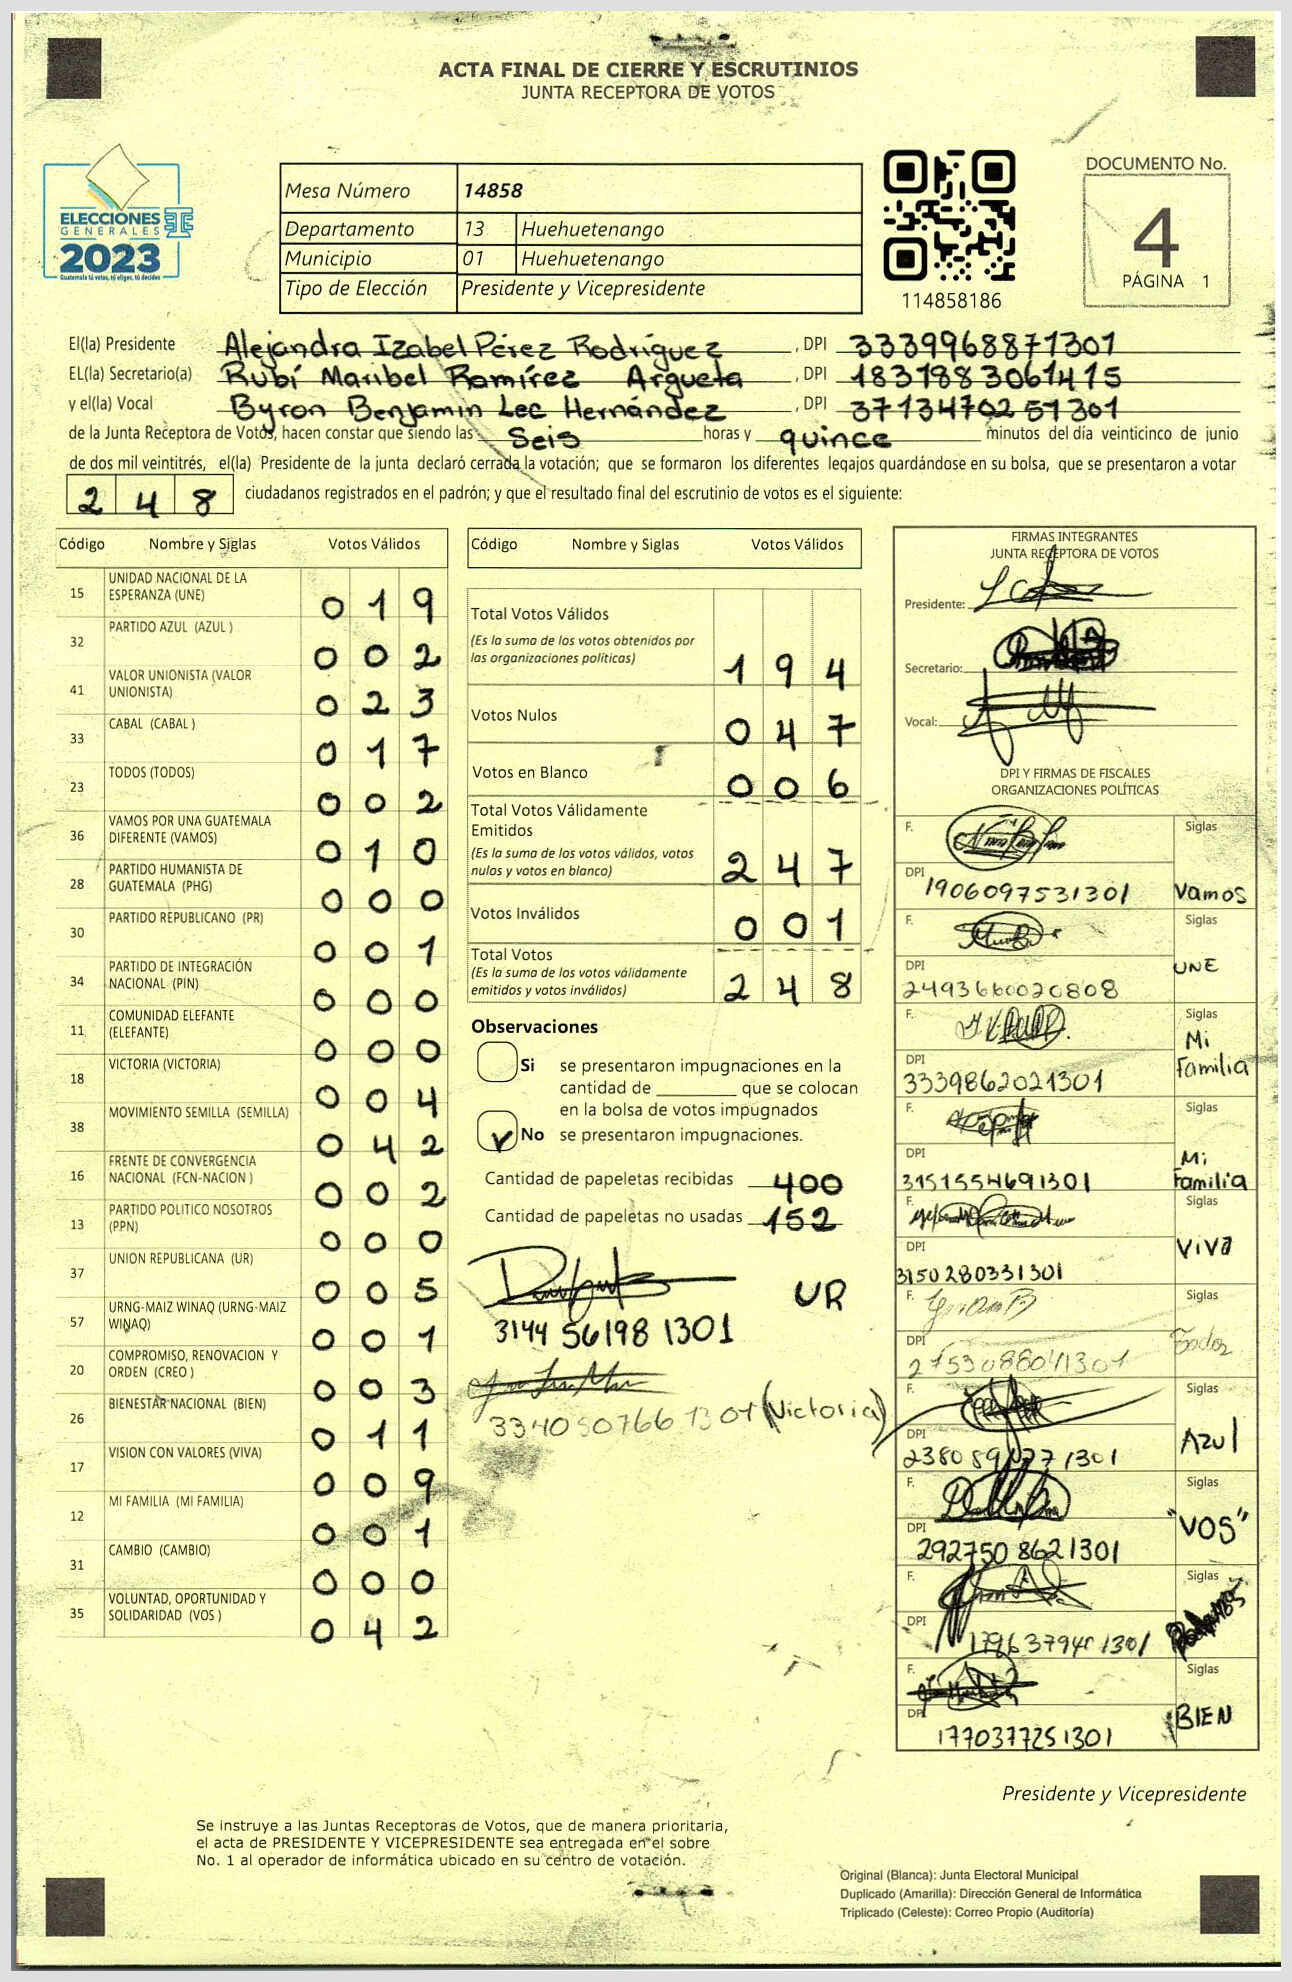 ACTA FINAL DE CIERRE Y ESCRUTINIOS
JUNTA RECEPTORA DE VOTOS
ELECCIONES
GENERALES
2023
Guatemala tú votas, tú eliges, tú decides
Mesa Número 14858
Departamento 13 Huehuetenango
Municipio 01 Huehuetenango
Tipo de Elección Presidente y Vicepresidente
114858186
DOCUMENTO No.
4
PÁGINA 1
El(la) Presidente Alejandra Izabel Pérez Rodríguez, DPI 3339968871301
EL(la) Secretario(a) Rubí Maribel Ramírez Argueta, DPI 1831983061415
y el(la) Vocal Byron Benjamin Lec Hernández, DPI 3713470251301
de la Junta Receptora de Votos, hacen constar que siendo las Seis horas y quince minutos del día veinticinco de junio
de dos mil veintitrés, el(la) Presidente de la junta declaró cerrada la votación; que se formaron los diferentes legajos quardándose en su bolsa, que se presentaron a votar
2 4 8 ciudadanos registrados en el padrón; y que el resultado final del escrutinio de votos es el siguiente:
Código Nombre y Siglas Votos Válidos
15 UNIDAD NACIONAL DE LA
ESPERANZA (UNE) 0 1 9
32 PARTIDO AZUL (AZUL ) 0 0 2
41 VALOR UNIONISTA (VALOR
UNIONISTA) 0 2 3
33 CABAL (CABAL ) 0 1 7
23 TODOS (TODOS) 0 0 2
36 VAMOS POR UNA GUATEMALA
DIFERENTE (VAMOS) 0 1 0
28 PARTIDO HUMANISTA DE
GUATEMALA (PHG) 0 0 0
30 PARTIDO REPUBLICANO (PR) 0 0 1
34 PARTIDO DE INTEGRACIÓN
NACIONAL (PIN) 0 0 0
11 COMUNIDAD ELEFANTE
(ELEFANTE) 0 0 0
18 VICTORIA (VICTORIA) 0 0 4
38 MOVIMIENTO SEMILLA (SEMILLA) 0 4 2
16 FRENTE DE CONVERGENCIA
NACIONAL (FCN-NACION ) 0 0 2
13 PARTIDO POLITICO NOSOTROS
(PPN) 0 0 0
37 UNION REPUBLICANA (UR) 0 0 5
57 URNG-MAIZ WINAQ (URNG-MAIZ
WINAQ) 0 0 1
20 COMPROMISO, RENOVACION Y
ORDEN (CREO ) 0 0 3
26 BIENESTAR NACIONAL (BIEN) 0 1 1
17 VISION CON VALORES (VIVA) 0 0 9
12 MI FAMILIA (MI FAMILIA) 0 0 1
31 CAMBIO (CAMBIO) 0 0 0
35 VOLUNTAD, OPORTUNIDAD Y
SOLIDARIDAD (VOS ) 0 4 2
Código Nombre y Siglas Votos Válidos
Total Votos Válidos
(Es la suma de los votos obtenidos por
las organizaciones políticas) 1 9 4
Votos Nulos 0 4 7
Votos en Blanco 0 0 6
Total Votos Válidamente
Emitidos
(Es la suma de los votos válidos, votos
nulos y votos en blanco) 2 4 7
Votos Inválidos 0 0 1
Total Votos
(Es la suma de los votos válidamente
emitidos y votos inválidos) 2 4 8
Observaciones
Si se presentaron impugnaciones en la
cantidad de ________ que se colocan
en la bolsa de votos impugnados
No se presentaron impugnaciones.
Cantidad de papeletas recibidas 400
Cantidad de papeletas no usadas 152
UR
3144 56198 1301
(Victoria)
FIRMAS INTEGRANTES
JUNTA RECEPTORA DE VOTOS
Presidente:
Secretario:
Vocal:
DPI Y FIRMAS DE FISCALES
ORGANIZACIONES POLÍTICAS
F. Siglas
DPI 1906097531301 Vamos
F. Siglas
DPI 2493660020808 UNE
F. Siglas
DPI 3339862021301 Mi Familia
F. Siglas
DPI 3151554691301 Mi Familia
F. Siglas
DPI 3150280331301 VIVA
F. Siglas
DPI Todos
F. Siglas
DPI Azul
F. Siglas
DPI 292750 8621301 "VOS"
F. Siglas
DPI
F. Siglas
DPI 1770377251301 BIEN
Presidente y Vicepresidente
Se instruye a las Juntas Receptoras de Votos, que de manera prioritaria,
el acta de PRESIDENTE Y VICEPRESIDENTE sea entregada en el sobre
No. 1 al operador de informática ubicado en su centro de votación.
Original (Blanca): Junta Electoral Municipal
Duplicado (Amarilla): Dirección General de Informática
Triplicado (Celeste): Correo Propio (Auditoría)